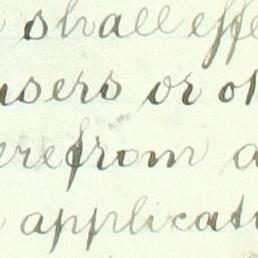 shall effe
users or ot
erefrom a
applicati